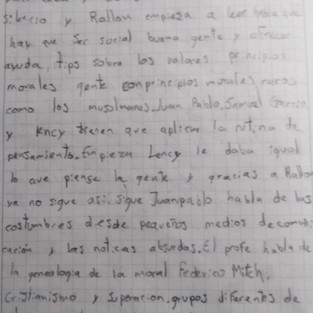 silencio y Rallon empieza a leer habla que
hay que ser social buena gente y ofrecer
ayuda, tips sobre los valores principios
morales gente con principios morales raros
como los musulmanes. Juan Pablo, Samuel Garcia,
y Kncy tienen que aplicar la rutina de
pensamiento. Empieza Lency le daba igual
lo que piense la gente y gracias a Rallon
ya no sigue asi. sigue Juanpablo habla de las
costumbres desde pequeños medios de comuni
cación y las noticas absurdas. El profe habla de
la genealogia de la moral Federico Mitch,
Cristianismo y superacion, grupos diferentes de